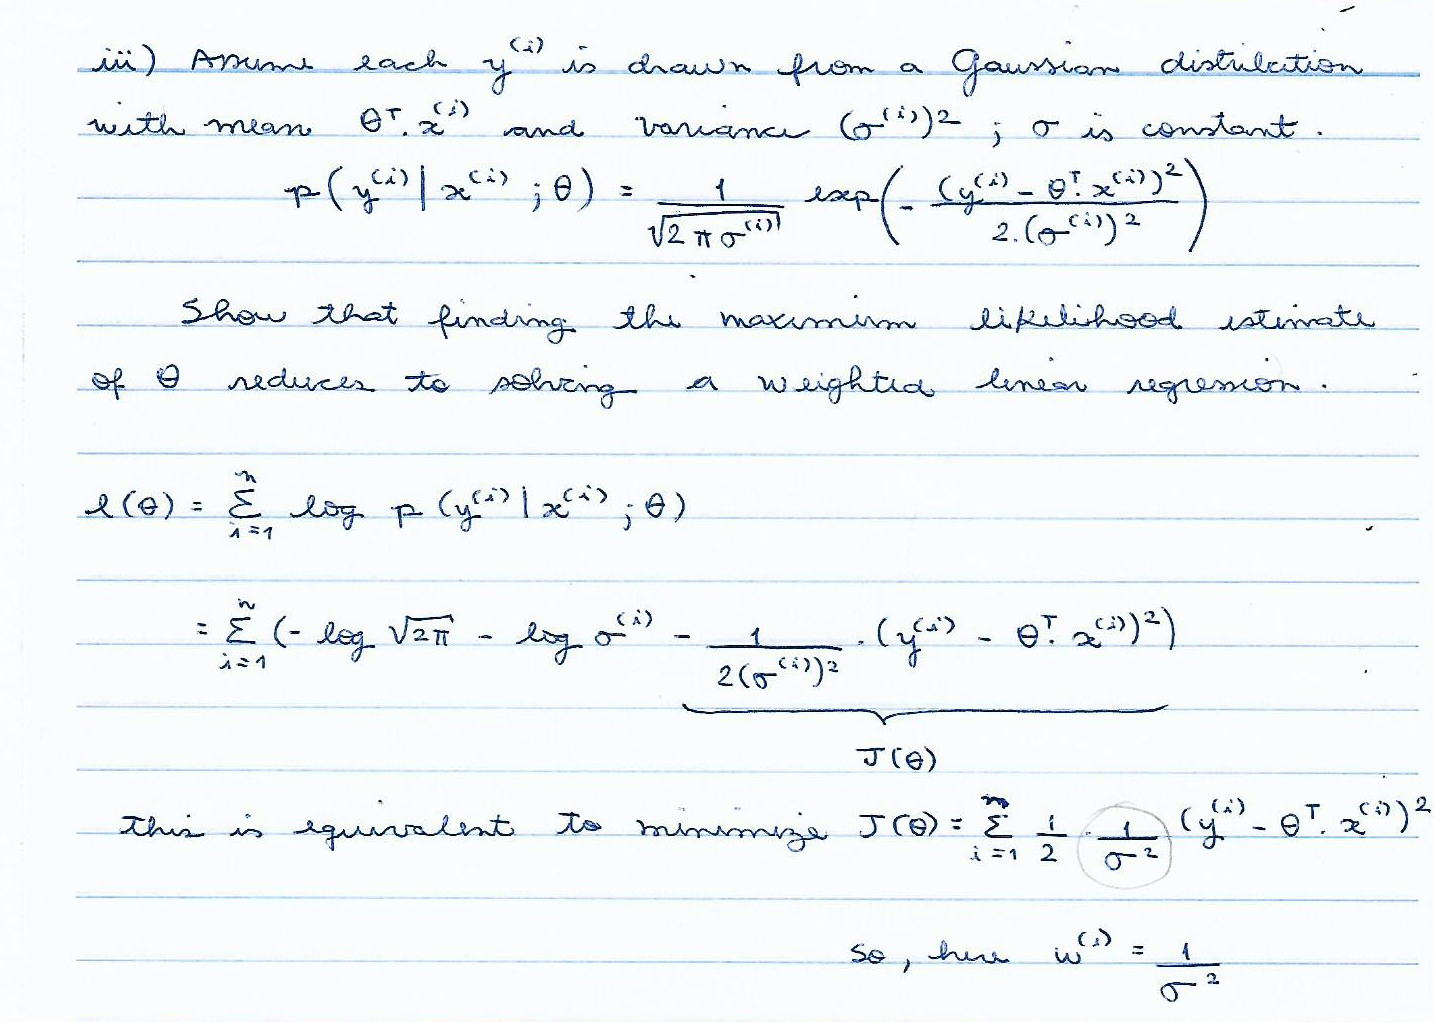 iii) Assume each y^(i) is drawn from a Gaussian distribution
with mean θ^T. x^(i) and variance (σ^(i))^2 ; σ is constant.
p(y^(i) | x^(i) ; θ) = 1/√(2πσ^(i)) exp(- (y^(i) - θ^T. x^(i))^2 / 2.(σ^(i))^2)
Show that finding the maximum likelihood estimate
of θ reduces to solving a weighted linear regression.
l(θ) = Σ_{i=1}^{n} log p (y^(i) | x^(i) ; θ)
= Σ_{i=1}^{n} (- log √2π - log σ^(i) - 1/2(σ^(i))^2 . (y^(i) - θ^T. x^(i))^2)
J(θ)
this is equivalent to minimize J(θ) = Σ_{i=1}^{n} 1/2 . 1/σ^2 (y^(i) - θ^T. x^(i))^2
so, here w^(i) = 1/σ^2